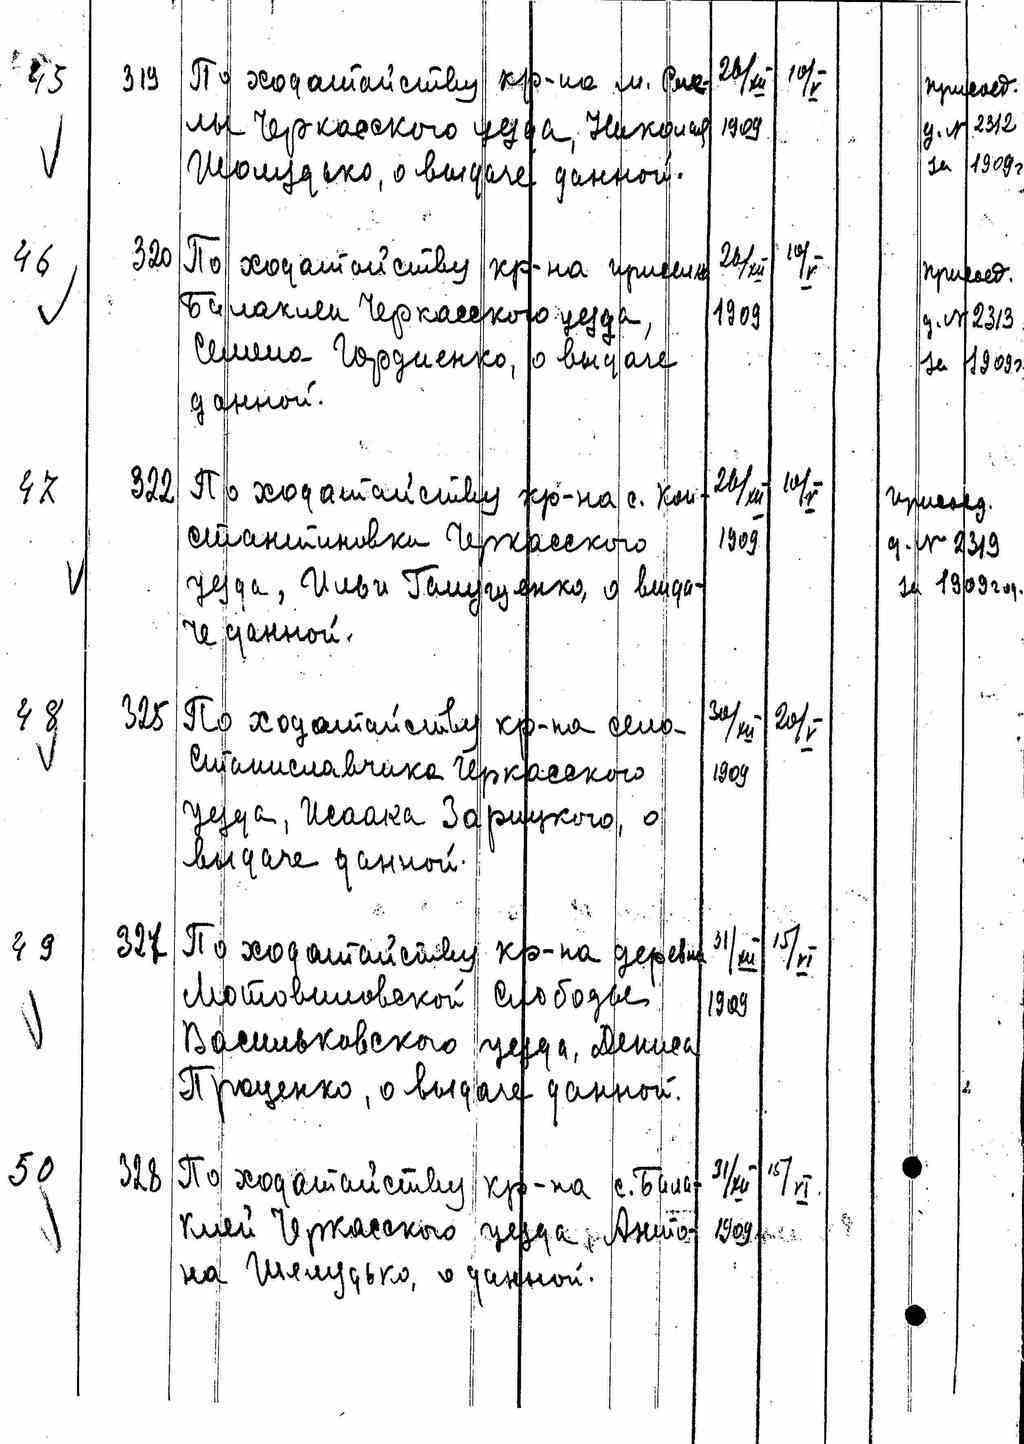 45 319 По ходатайству кр-на м. Смe- 26/XII 10/V присоед.
лы Черкасского уезда, Николая 1909 д. № 2312
Шолудько, о выдаче данной. за 1909 г
46 320 По ходатайству кр-на приселка 26/XII 10/V присоед.
Балаклеи Черкасского уезда, 1909 д. № 2313
Семена Гордиенко, о выдаче за 1909 г.
данной.
47 322 По ходатайству кр-на с. Кон- 26/XII 10/V присоед.
стантиновки Черкасского 1909 д. № 2319
уезда, Ильи Галущенко, о выда- за 1909 год.
че данной.
48 325 По ходатайству кр-на села 30/XII 20/V
Станиславчика Черкасского 1909
уезда, Исаака Зарицкого, о
выдаче данной.
49 327 По ходатайству кр-на деревни 31/XII 15/VI
Мотовиловской Слободы 1909
Васильковского уезда, Дениса
Проценко, о выдаче данной.
50 328 По ходатайству кр-на с. Бала- 31/XII 15/VI
клей Черкасского уезда, Анто- 1909
на Шелудько, о данной.